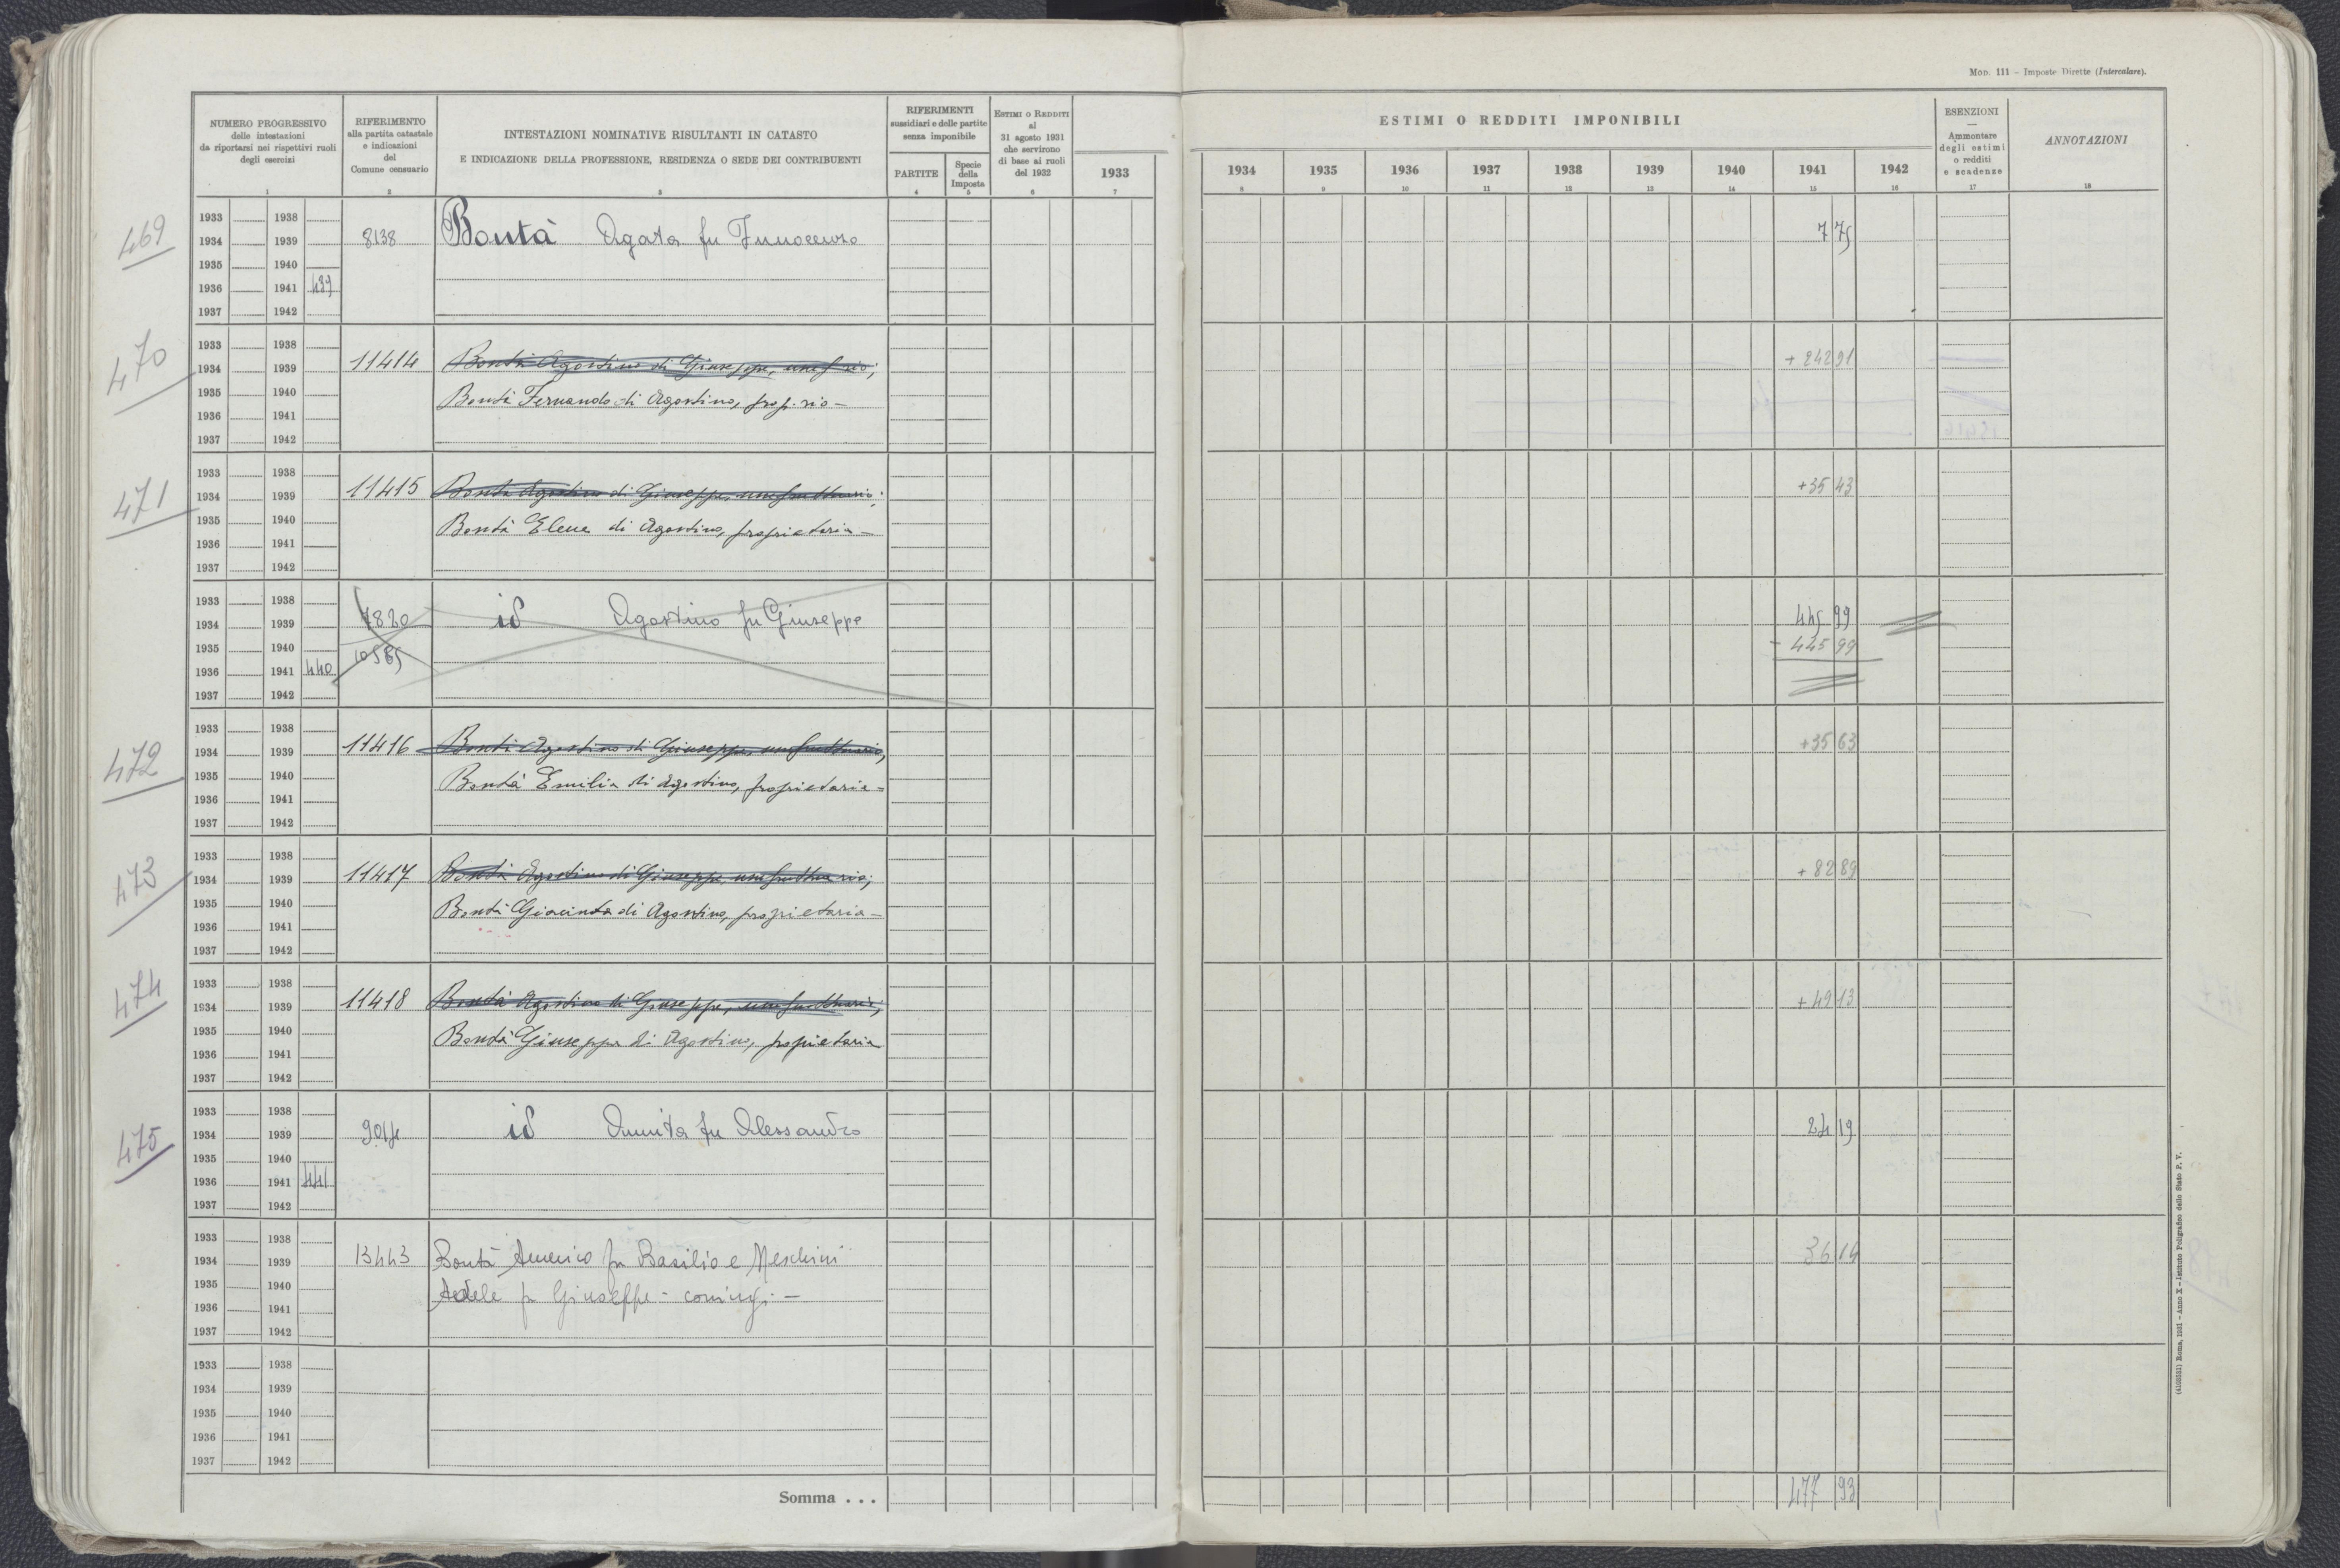 Mod. 111 – Imposte Dirette (Intercalare).
NUMERO PROGRESSIVO
delle intestazioni
da riportarsi nei rispettivi ruoli
degli esercizi
1
RIFERIMENTO
alla partita catastale
e indicazioni
del
Comune censuario
2
INTESTAZIONI NOMINATIVE RISULTANTI IN CATASTO
E INDICAZIONE DELLA PROFESSIONE, RESIDENZA O SEDE DEI CONTRIBUENTI
3
RIFERIMENTI
sussidiari e delle partite
senza imponibile
PARTITE
4
Specie
della
Imposta
5
ESTIMI O REDDITI
al
31 agosto 1931
che servirono
di base ai ruoli
del 1932
6
1933
7
ESTIMI O REDDITI IMPONIBILI
1934 1935 1936 1937 1938 1939 1940 1941 1942
8 9 10 11 12 13 14 15 16
ESENZIONI
—
Ammontare
degli estimi
o redditi
e scadenze
17
ANNOTAZIONI
18
469
1933 1938
1934 1939 8138 Bontà Agata fu Innocenzo 7 75
1935 1940
1936 1941 439
1937 1942
470
1933 1938
1934 1939 11414 Bontà Agostino di Giuseppe, usuf.rio; + 242 91
1935 1940 Bontà Fernando di Agostino, prop.rio –
1936 1941
1937 1942
471
1933 1938
1934 1939 11415 Bontà Agostino di Giuseppe, usufruttuario; +35 43
1935 1940 Bontà Elena di Agostino, proprietaria –
1936 1941
1937 1942
1933 1938
1934 1939 7820 id Agostino fu Giuseppe 445 99
1935 1940 10565 - 445 99
1936 1941 440
1937 1942
472
1933 1938
1934 1939 11416 Bontà Agostino di Giuseppe, usufruttuario, +35 63
1935 1940 Bontà Emilia di Agostino, proprietaria –
1936 1941
1937 1942
473
1933 1938
1934 1939 11417 Bontà Agostino di Giuseppe, usufruttuario; + 82 89
1935 1940 Bontà Giacinta di Agostino, proprietaria –
1936 1941
1937 1942
474
1933 1938
1934 1939 11418 Bontà Agostino di Giuseppe, usufruttuario, + 49 13
1935 1940 Bontà Giuseppa di Agostino, proprietaria
1936 1941
1937 1942
475
1933 1938
1934 1939 9014 id Annita fu Alessandro 24 19
1935 1940
1936 1941 441
1937 1942
1933 1938
1934 1939 13443 Bontà Americo fu Basilio e Meschini 36 14
1935 1940 Adele fu Giuseppe - coniugi –
1936 1941
1937 1942
1933 1938
1934 1939
1935 1940
1936 1941
1937 1942
Somma . . . 477 93
(4103551) Roma, 1931 – Anno X – Istituto Poligrafico dello Stato P. V.